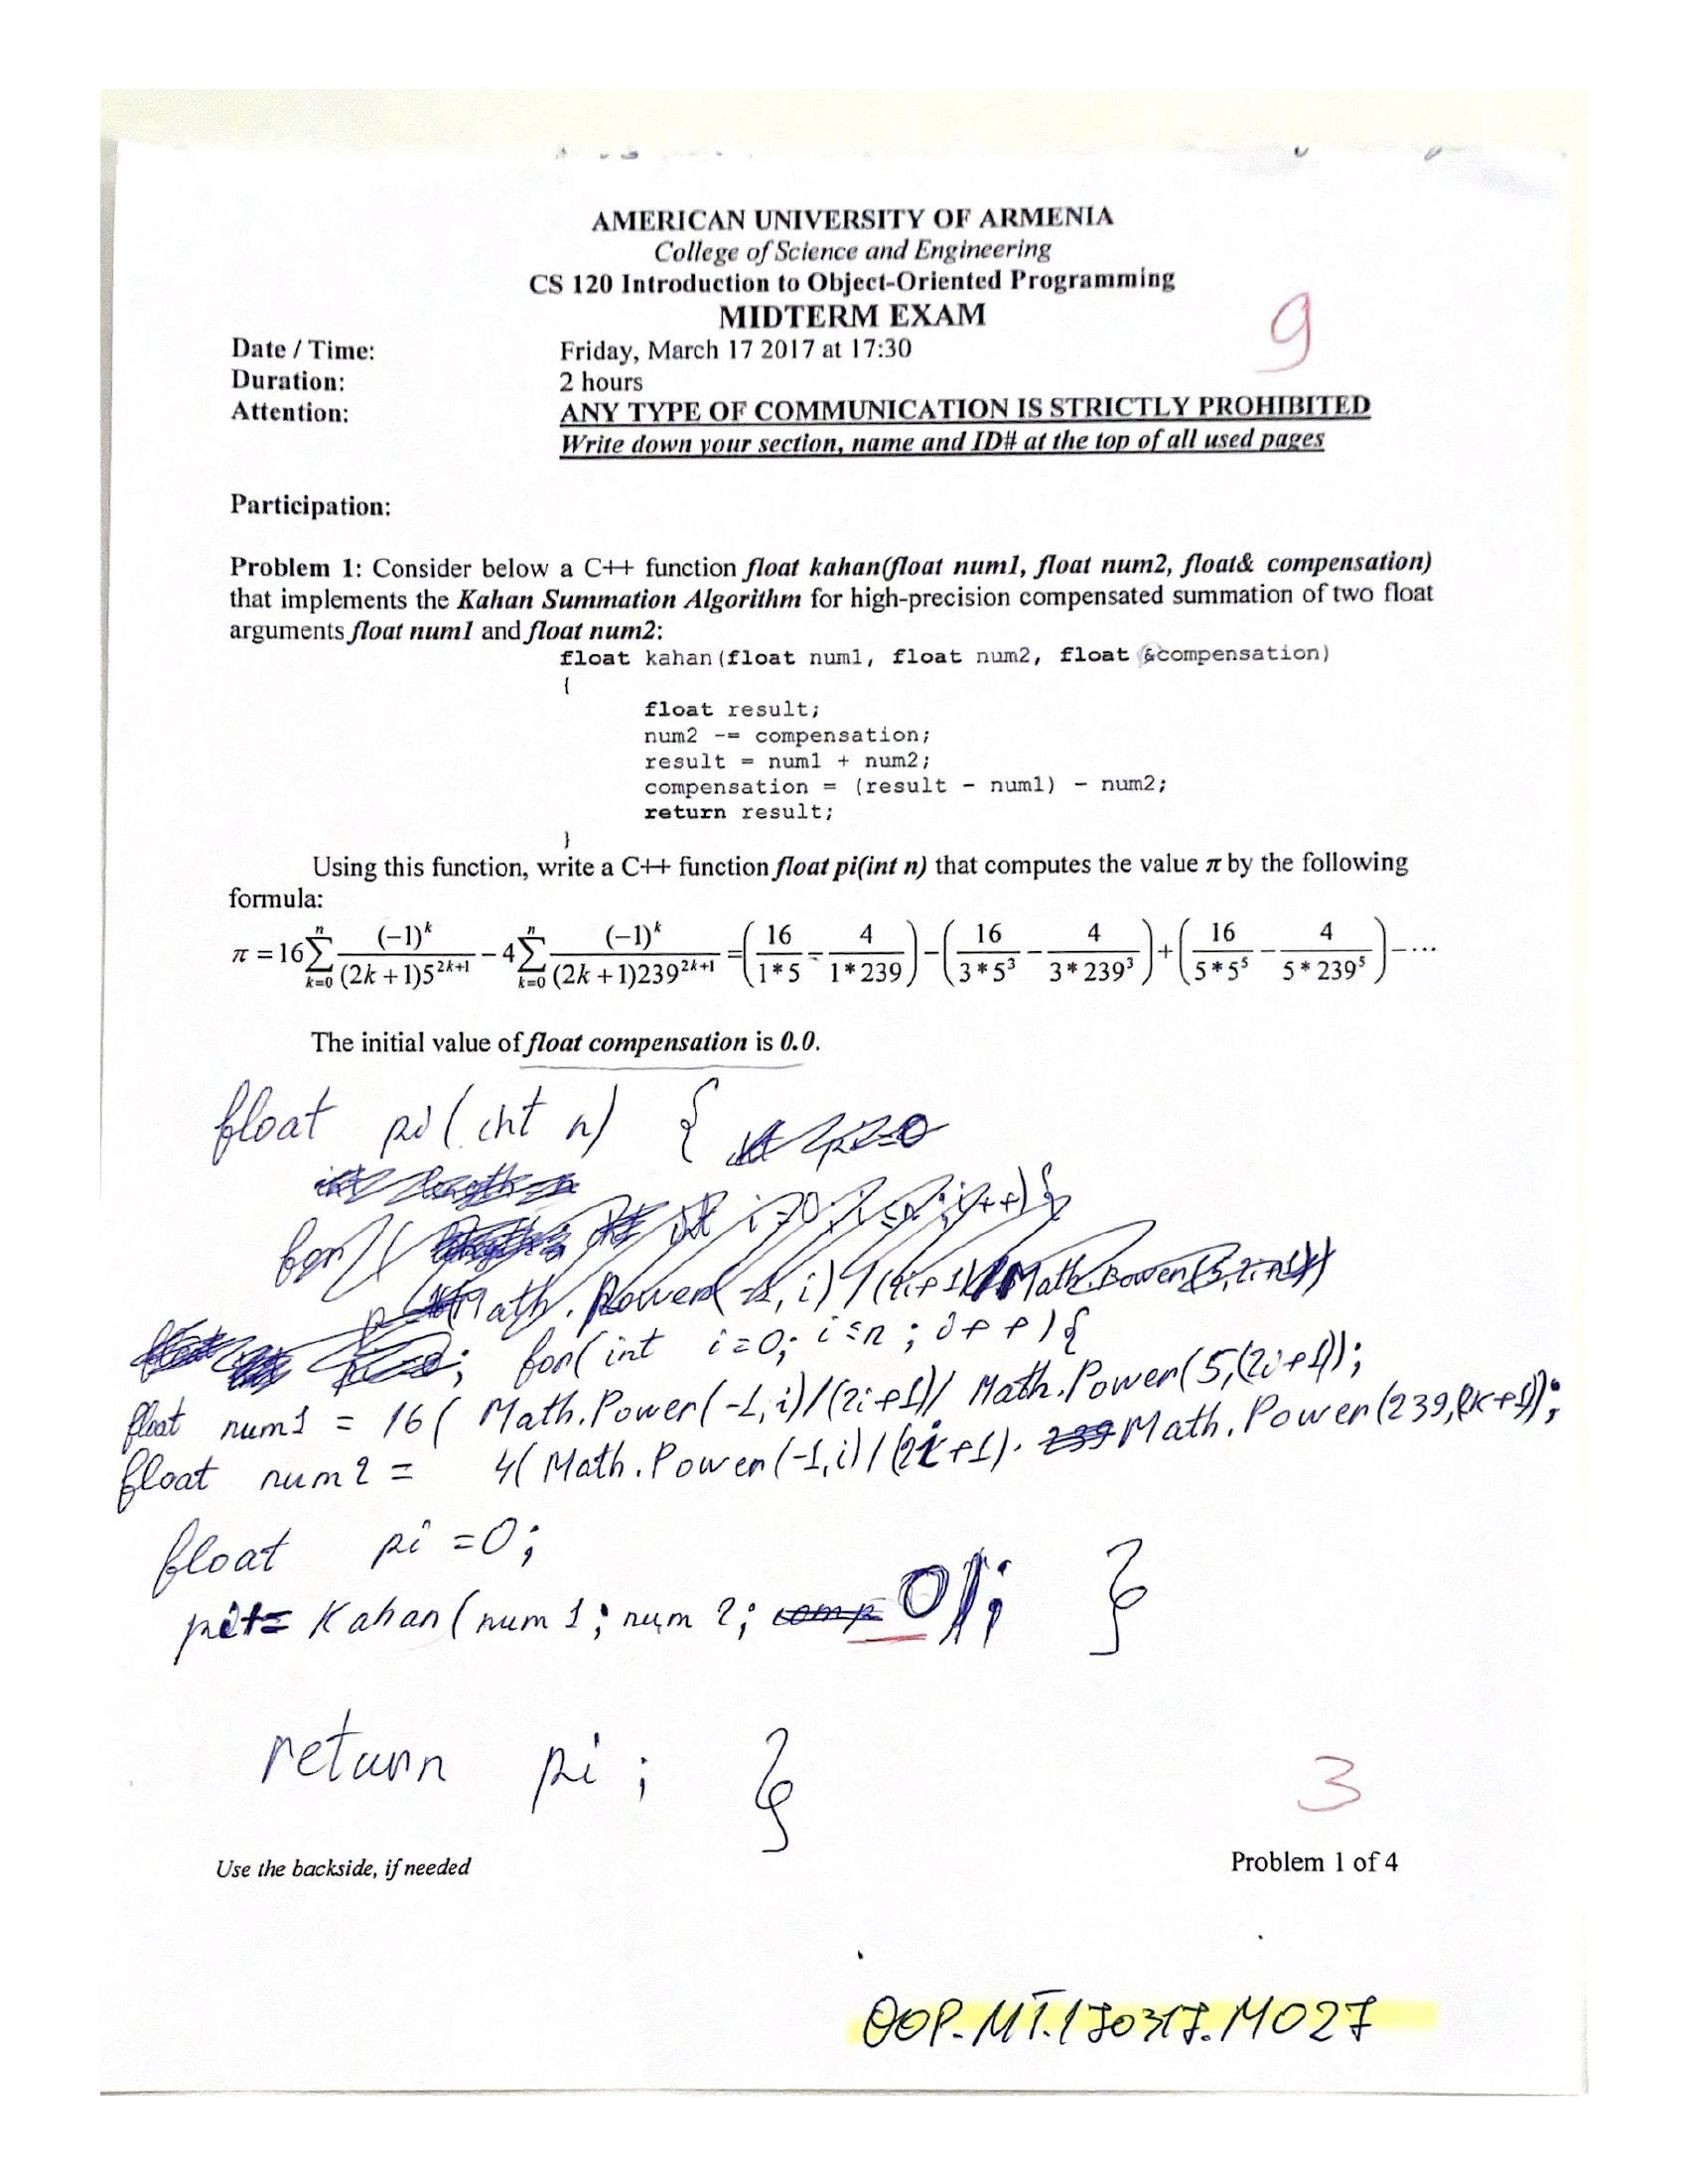 AMERICAN UNIVERSITY OF ARMENIA
College of Science and Engineering
CS 120 Introduction to Object-Oriented Programming
MIDTERM EXAM
9
Date / Time: Friday, March 17 2017 at 17:30
Duration: 2 hours
Attention: ANY TYPE OF COMMUNICATION IS STRICTLY PROHIBITED
Write down your section, name and ID# at the top of all used pages
Participation:
Problem 1: Consider below a C++ function float kahan(float num1, float num2, float& compensation)
that implements the Kahan Summation Algorithm for high-precision compensated summation of two float
arguments float num1 and float num2:
float kahan(float num1, float num2, float &compensation)
{
float result;
num2 -= compensation;
result = num1 + num2;
compensation = (result - num1) - num2;
return result;
}
Using this function, write a C++ function float pi(int n) that computes the value π by the following
formula:
π = 16 Σ_{k=0}^{n} (-1)^k / ((2k+1)5^{2k+1}) - 4 Σ_{k=0}^{n} (-1)^k / ((2k+1)239^{2k+1}) = (16/(1*5) - 4/(1*239)) - (16/(3*5^3) - 4/(3*239^3)) + (16/(5*5^5) - 4/(5*239^5)) - ...
The initial value of float compensation is 0.0.
float pi(int n) {
for( int i=0; i≤n; i++){
(Math.Power(-1, i) / (2i+1) / Math.Power(5, 2i+1))
; for(int i=0; i≤n; i++){
float num1 = 16( Math.Power(-1,i)/(2i+1)/ Math.Power(5,(2i+1));
float num2 = 4( Math.Power(-1,i)/(2i+1). 239 Math.Power(239,(2k+1));
float pi=0;
pi+= Kahan(num1; num2; comp 0); }
return pi; }
3
Use the backside, if needed Problem 1 of 4
OOP.MT.170317.M027